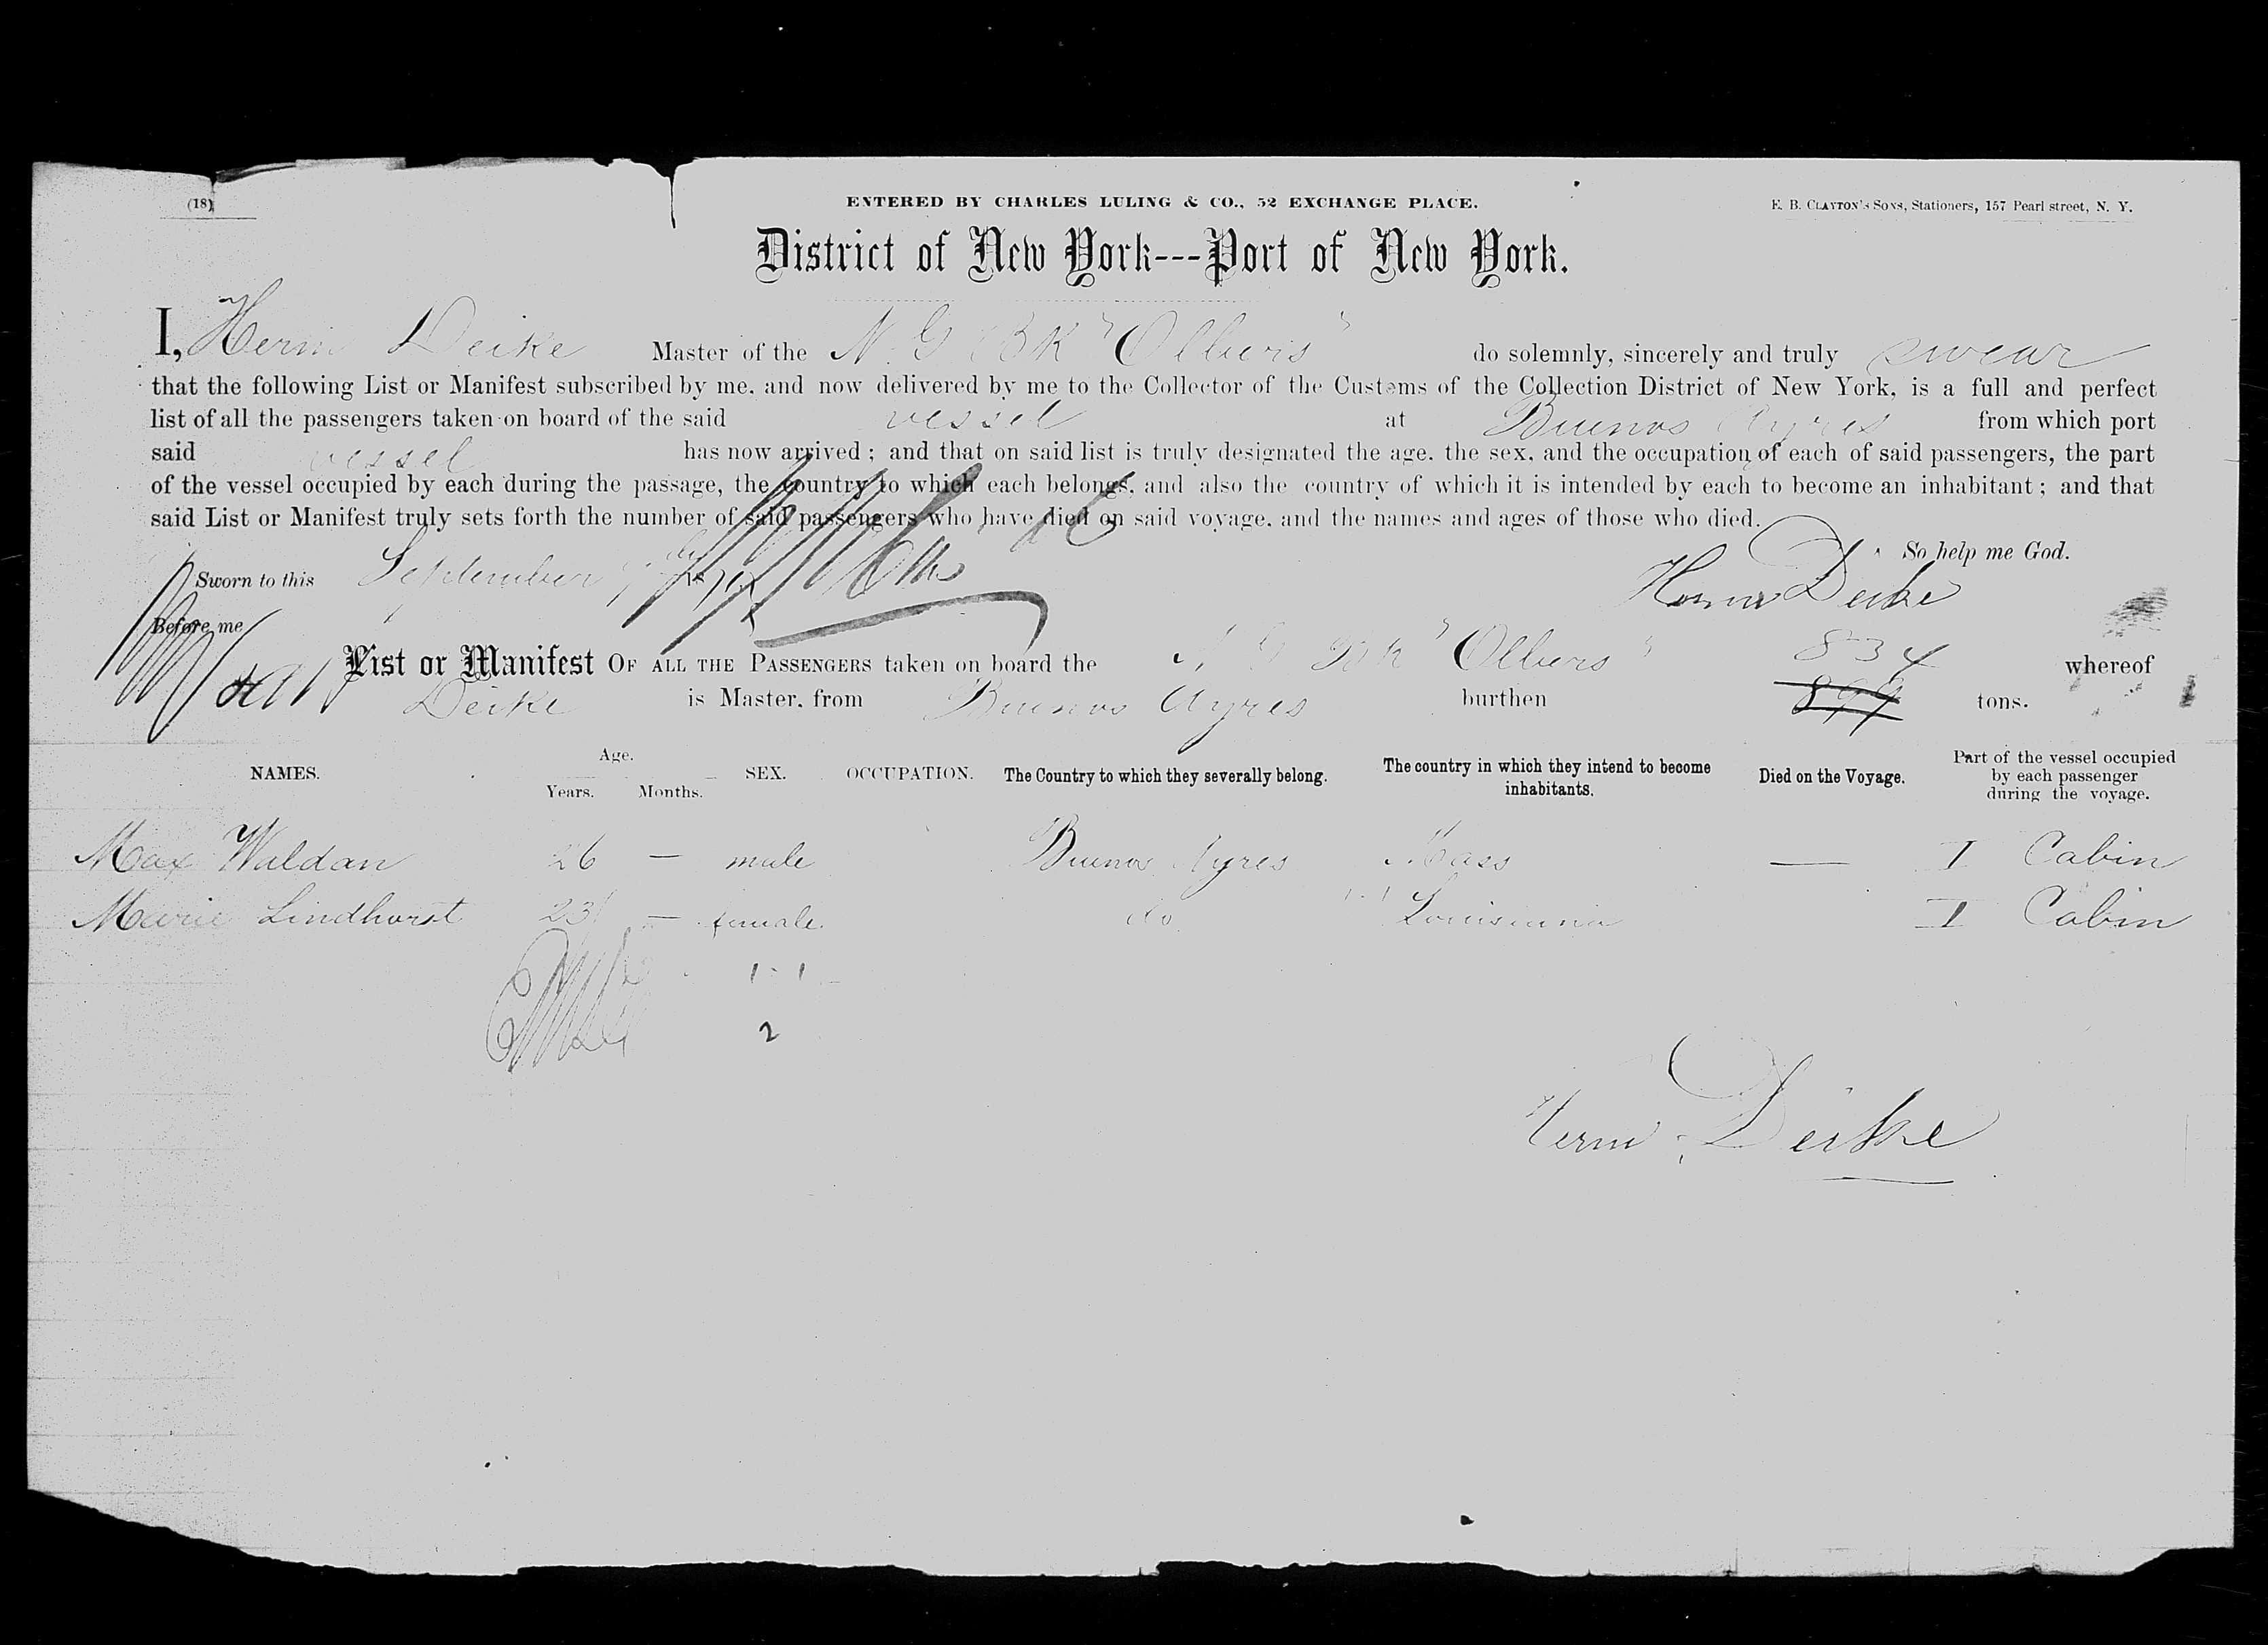 (18)
ENTERED BY CHARLES LULING & CO., 52 EXCHANGE PLACE.
E. B. CLAYTON'S SONS, Stationers, 157 Pearl street, N. Y.
District of New York---Port of New York.
I, Herm Deike Master of the N. G. BK "Olbers" do solemnly, sincerely and truly swear
that the following List or Manifest subscribed by me, and now delivered by me to the Collector of the Customs of the Collection District of New York, is a full and perfect
list of all the passengers taken on board of the said vessel at Buenos Ayres from which port
said vessel has now arrived; and that on said list is truly designated the age, the sex, and the occupation of each of said passengers, the part
of the vessel occupied by each during the passage, the country to which each belongs, and also the country of which it is intended by each to become an inhabitant; and that
said List or Manifest truly sets forth the number of said passengers who have died on said voyage, and the names and ages of those who died.
So help me God.
Sworn to this September 18
Herm Deike
Before me
List or Manifest OF ALL THE PASSENGERS taken on board the N G BK "Olbers" 834 whereof
Deike is Master, from Buenos Ayres burthen 899 tons.
NAMES. Age. Years. Months. SEX. OCCUPATION. The Country to which they severally belong. The country in which they intend to become inhabitants. Died on the Voyage. Part of the vessel occupied by each passenger during the voyage.
Max Waldan 26 — male Buenos Ayres Mass — I Cabin
Marie Lindhorst 23 — female. do Louisiana I Cabin
1 - 1
2
Herm. Deike